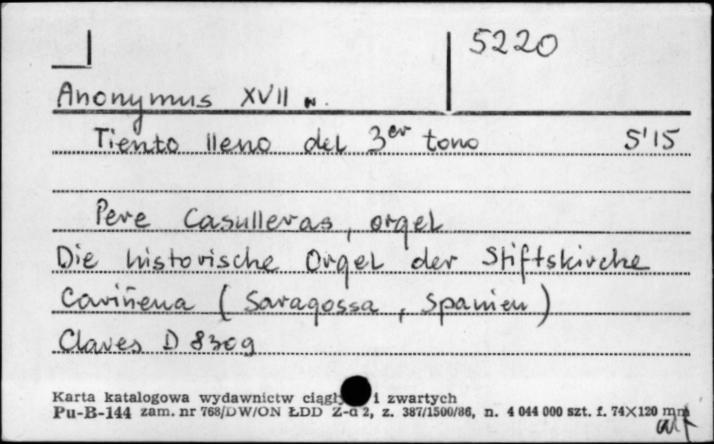 5220
Anonymus XVII w.
Tiento lleno del 3er tono 5'15
Pere Casulleras, orgel
Die historische Orgel der Stiftskirche
Cariñena (Saragossa, Spanien)
Claves D 8309
Karta katalogowa wydawnictw ciągł i zwartych
Pu-B-144 zam. nr 768/DW/ON ŁDD Z-d 2, z. 387/1500/86, n. 4 044 000 szt. f. 74×120 mm